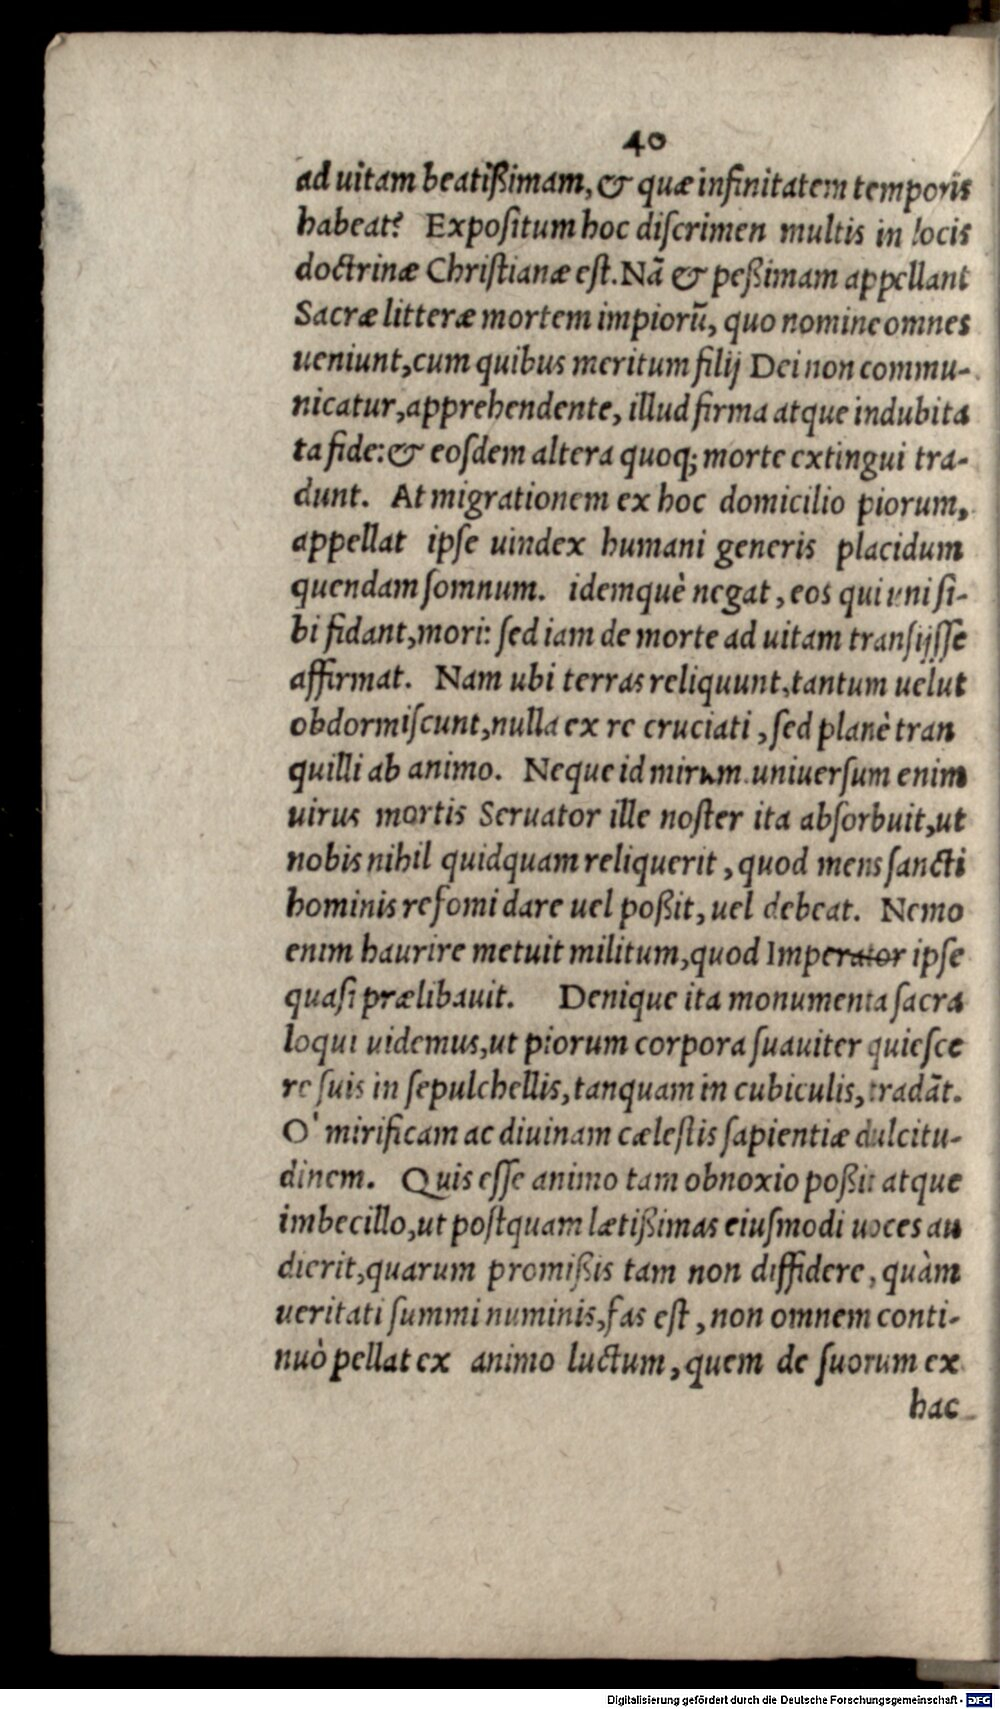 40
ad uitam beatißimam, & quæ infinitatem temporis
habeat? Expoſitum hoc diſcrimen multis in locis
doctrinæ Chriſtianæ eſt. Nã & peßimam appellant
Sacræ litteræ mortem impiorũ, quo nomine omnes
ueniunt, cum quibus meritum filij Dei non commu-
nicatur, apprehendente, illud firma atque indubita
ta fide: & eoſdem altera quoq; morte extingui tra-
dunt. At migrationem ex hoc domicilio piorum,
appellat ipſe uindex humani generis placidum
quendam ſomnum. idemquè negat, eos qui uni ſi-
bi fidant, mori: ſed iam de morte ad uitam tranſijſſe
affirmat. Nam ubi terras reliquunt, tantum uelut
obdormiſcunt, nulla ex re cruciati, ſed planè tran
quilli ab animo. Neque id mirum. uniuerſum enim
uirus mortis Seruator ille noſter ita abſorbuit, ut
nobis nihil quidquam reliquerit, quod mens ſancti
hominis refomidare uel poßit, uel debeat. Nemo
enim haurire metuit militum, quod Imperator ipſe
quaſi prælibauit. Denique ita monumenta ſacra
loqui uidemus, ut piorum corpora ſuauiter quieſce
re ſuis in ſepulchellis, tanquam in cubiculis, tradãt.
O' mirificam ac diuinam cæleſtis ſapientiæ dulcitu-
dinem. Quis eſſe animo tam obnoxio poßit atque
imbecillo, ut poſtquam lætißimas eiuſmodi uoces au
dierit, quarum promißis tam non diffidere, quàm
ueritati ſummi numinis, fas eſt, non omnem conti-
nuò pellat ex animo luctum, quem de ſuorum ex
hac
Digitalisierung gefördert durch die Deutsche Forschungsgemeinschaft - DFG